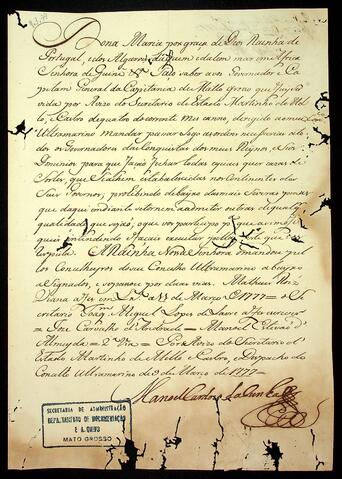 Dona Maria por graça de Deos Rainha de
Portugal, e dos Algarves da quem e dalem mar em Africa
Senhora de Guine Vª Faço saber a vos Governador e Ca
pitam General da Capitania de Matto Groso que Fui ser
vida por Avizo do Secretario de Estado Martinho de Mel
lo, e Castro de quatro do corrente mes e anno, dirigido ao meu
Ultramarino mandar pasar as ordens necesarias a to
dos os Governadores das Conquistas dos meus Reynos, e
Dominios para que façais fechar todas
que se achem estabalecidas nos Continentes dos
Seus Governos, prohibindo debaixo das mais severas penas
que daqui em diante se tornem a admetir outras de qual
qualidade que sejaó; o que vos participo para que asim o fi
queis entendendo e façais executar pela parte que
A Rainha Nossa Senhora o mandou pe
los Conselheyros do seu Concelho Ultramarino abayxo
asignados, e se pasou por duas vias. Matheus Roiz
Vianna a fes em Lxª a 11 de Março de 1777 = o Se
cretario Joaqm Miguel Lopes de Lavre a fes escrever
= Joze Carvalho de Andrade = Manoel Estevaó de
Almeyda = 2ª Via = Por Avizo do Secretario de
Estado Martinho de Mello e Castro, e Despacho do
Concelho Ultramarino de 9 de Março de 1777 =
Manoel Cardoso da Cunha
SECRETARIA DE ADMINISTRAÇÃO
DEPARTAMENTO DE DOCUMENTAÇÃO
E ARQUIVO
MATO GROSSO